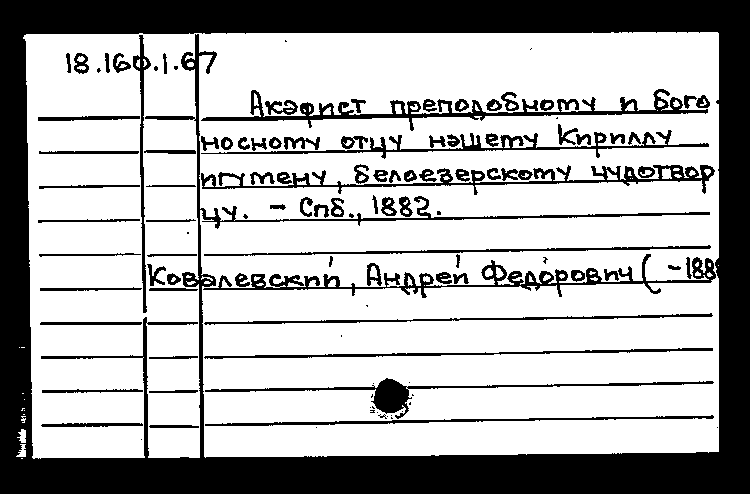 18.160.1.67
Акафист преподобному и бого-
носному отцу нашему Кириллу
игумену, белоезерскому чудотвор
цу. - Спб., 1882.
Ковалевский, Андрей Федорович ( -188